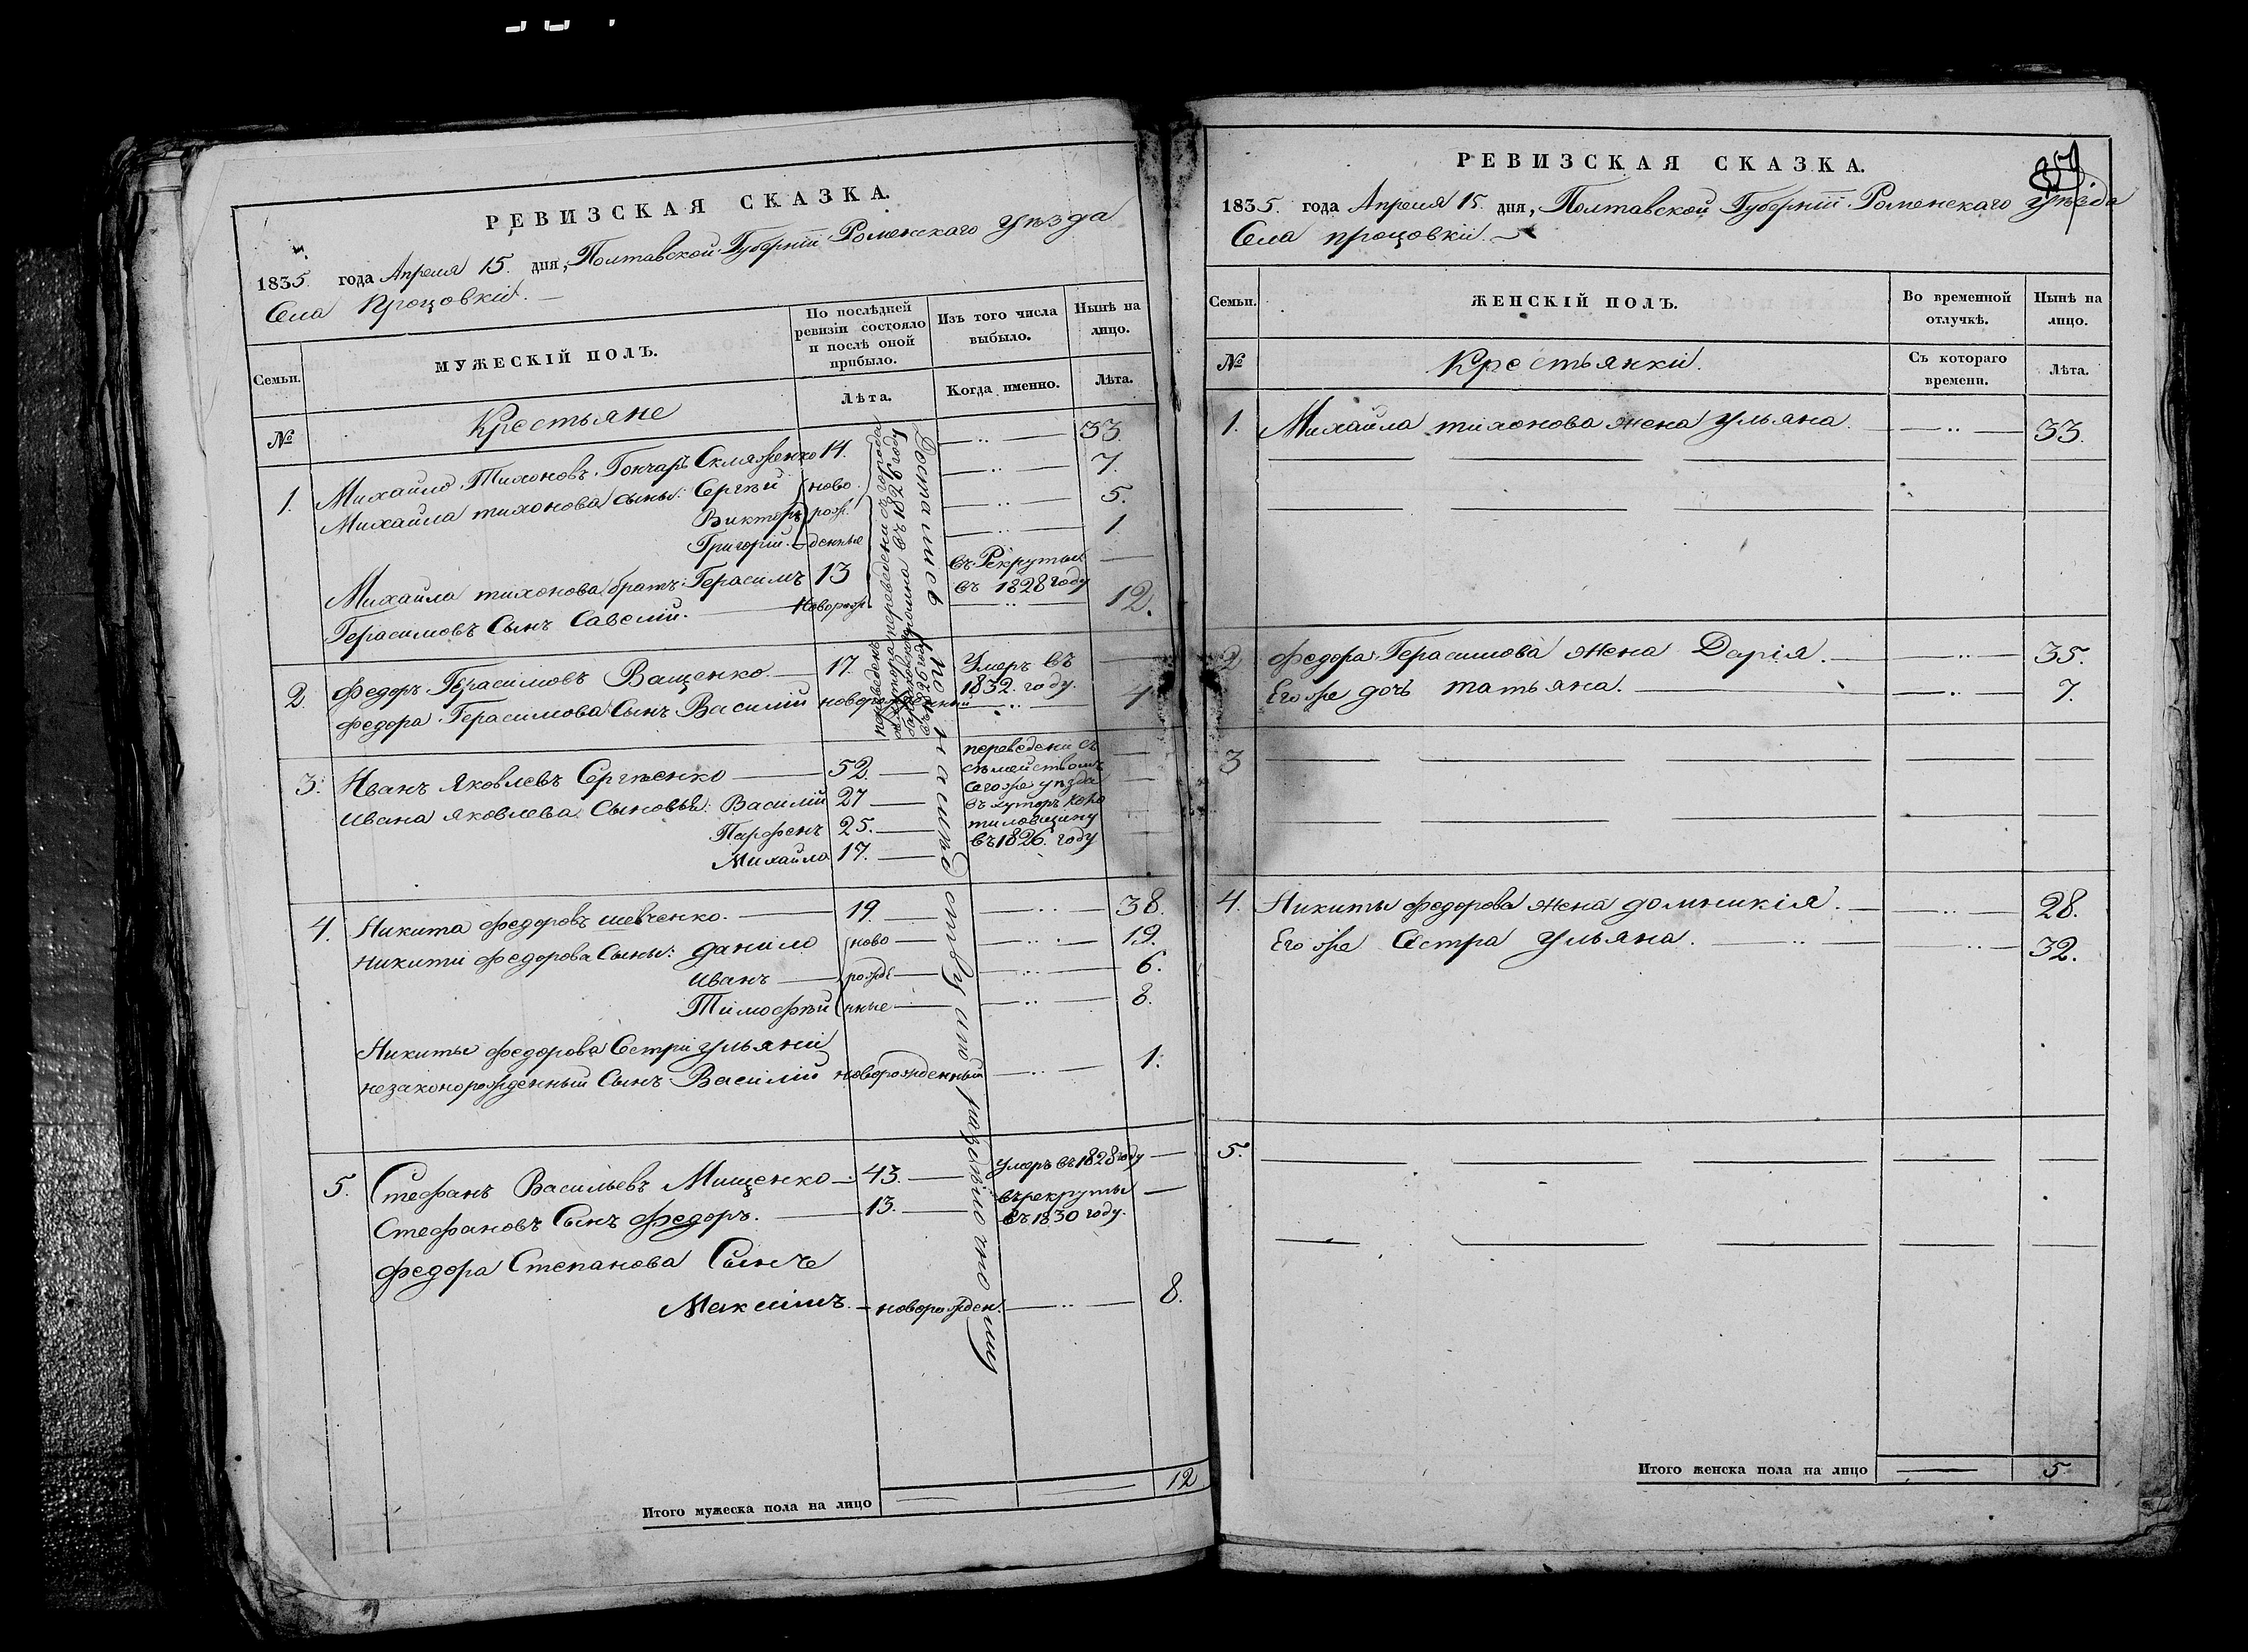 РЕВИЗСКАЯ СКАЗКА.
1835. года Апреля 15. дня, Полтавской Губернїи Роменскаго уѣзда
Села процовки.
Семьи.
МУЖЕСКІЙ ПОЛЪ.
По послѣдней ревизіи состояло и послѣ оной прибыло.
Изъ того числа выбыло.
Нынѣ на лицо.
№
Крестьяне
Лѣта.
Когда именно.
Лѣта.
1. Михайло Тихоновъ Гончаръ Скляренко 14. 33.
Михайла тихонова сыны: Сергѣй ново 7.
Викторъ рож. 5.
Григорій денные 1
Михайла тихонова братъ Герасимъ 13 въ Рекруты
въ 1828 году
Герасимовъ Сынъ Савелій. Новорож. 12.
2. Федоръ Герасимовъ Ващенко 17. Умеръ въ
1832. году.
Федора Герасимова Сынъ Василій новорожденный 4
3. Иванъ Яковлевъ Сергѣенко 52. переведени съ
семействомъ
Ивана яковлева Сыновья: Василій 27 сегоже уѣзда
Парфенъ 25. въ хуторъ
Михайла 17. въ 1826. году
4. Никита федоровъ шевченко. 19. 38.
никити федорова Сыны: данило ново 19.
иванъ рожде 6.
Тимофѣй нные 8.
Никиты федорова Сестри ульяни
незаконорожденный Сынъ Василій новорожденный 1.
5. Стефанъ Васильевъ Мищенко 43. умеръ въ 1828 году
Стефановъ Сынъ федоръ. 13. въ рекруты
въ 1830 году.
федора Степанова Сынъ
Максимъ. новорожден. 8.
Достались по наслѣдству по раздѣлному
Итого мужеска пола на лицо 12
РЕВИЗСКАЯ СКАЗКА.
1835. года Апреля 15. дня, Полтавской Губернїи Роменскаго уѣзда
Села процовки.
Семьи.
ЖЕНСКІЙ ПОЛЪ.
Во временной отлучкѣ.
Нынѣ на лицо.
№
Крестьянки.
Съ котораго времени.
Лѣта.
1. Михайла тихонова жена ульяна 33.
2 федора Герасимова жена Дарія. 35.
Его же дочь татьяна. 7.
3
4. Никиты федорова жена домникія. 28.
Его же Сестра ульяна. 32.
5.
Итого женска пола на лицо 5